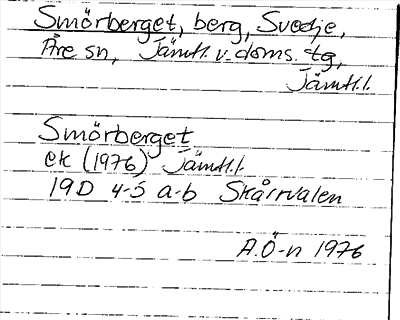 Smörberget, berg, Svedje,
Åre sn, Jämtl. v. doms. tg,
Jämtl.l.
Smörberget
ek (1976) Jämtl.l.
19D 4-5 a-b Skårrvalen
A.Ö-n 1976